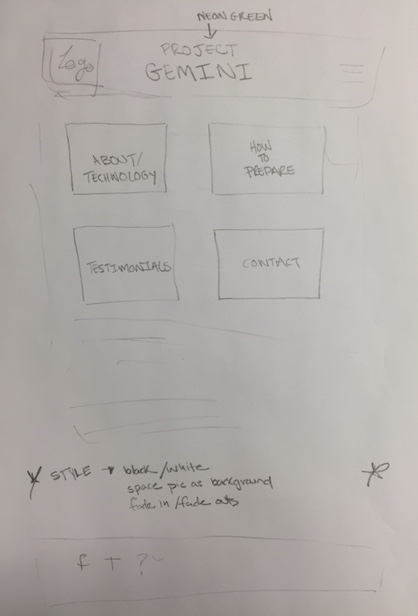 NEON GREEN
Logo
PROJECT
GEMINI
ABOUT/
TECHNOLOGY
HOW
TO
PREPARE
TESTIMONIALS
CONTACT
STYLE → black/white
space pic as background
fade in/fade outs
f T ?